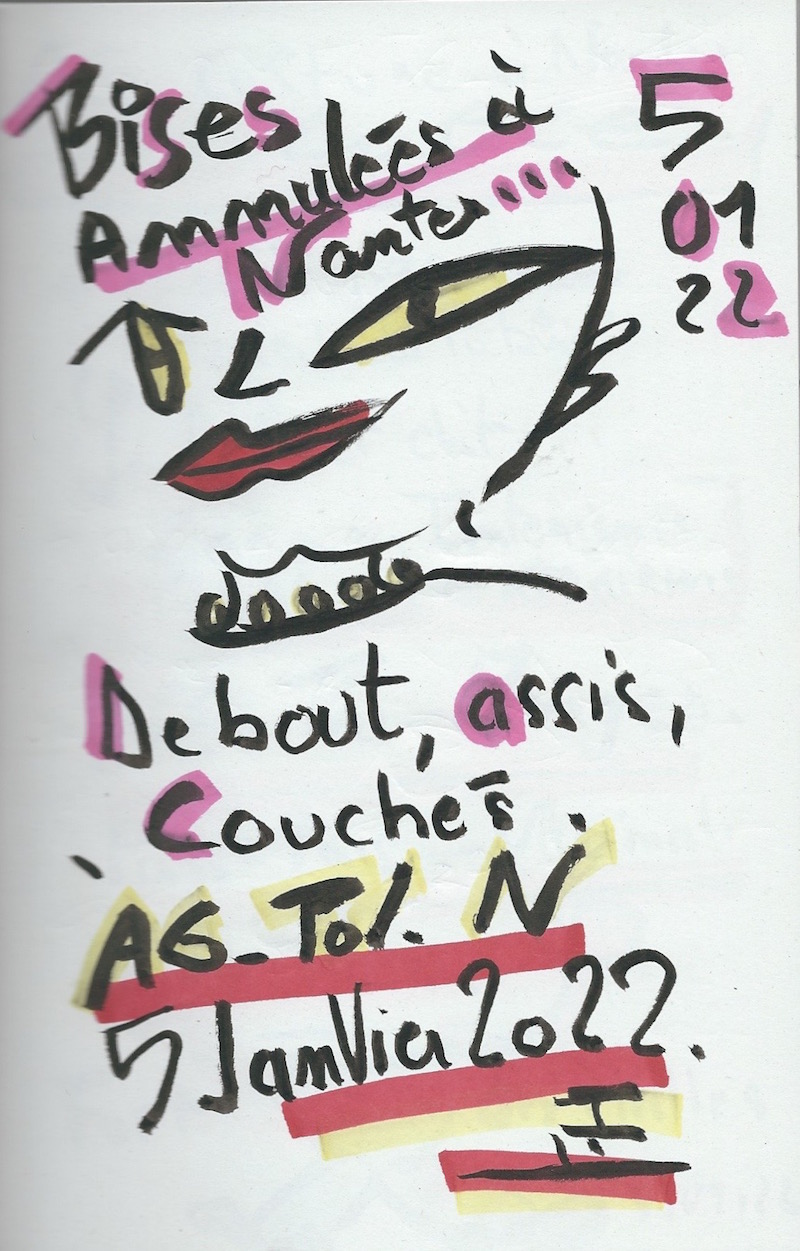 Bises
Annulées à
Nantes...
5
01
22
Debout, assis,
Couchés.
À AG. Tol. N
5 Janvier 2022.